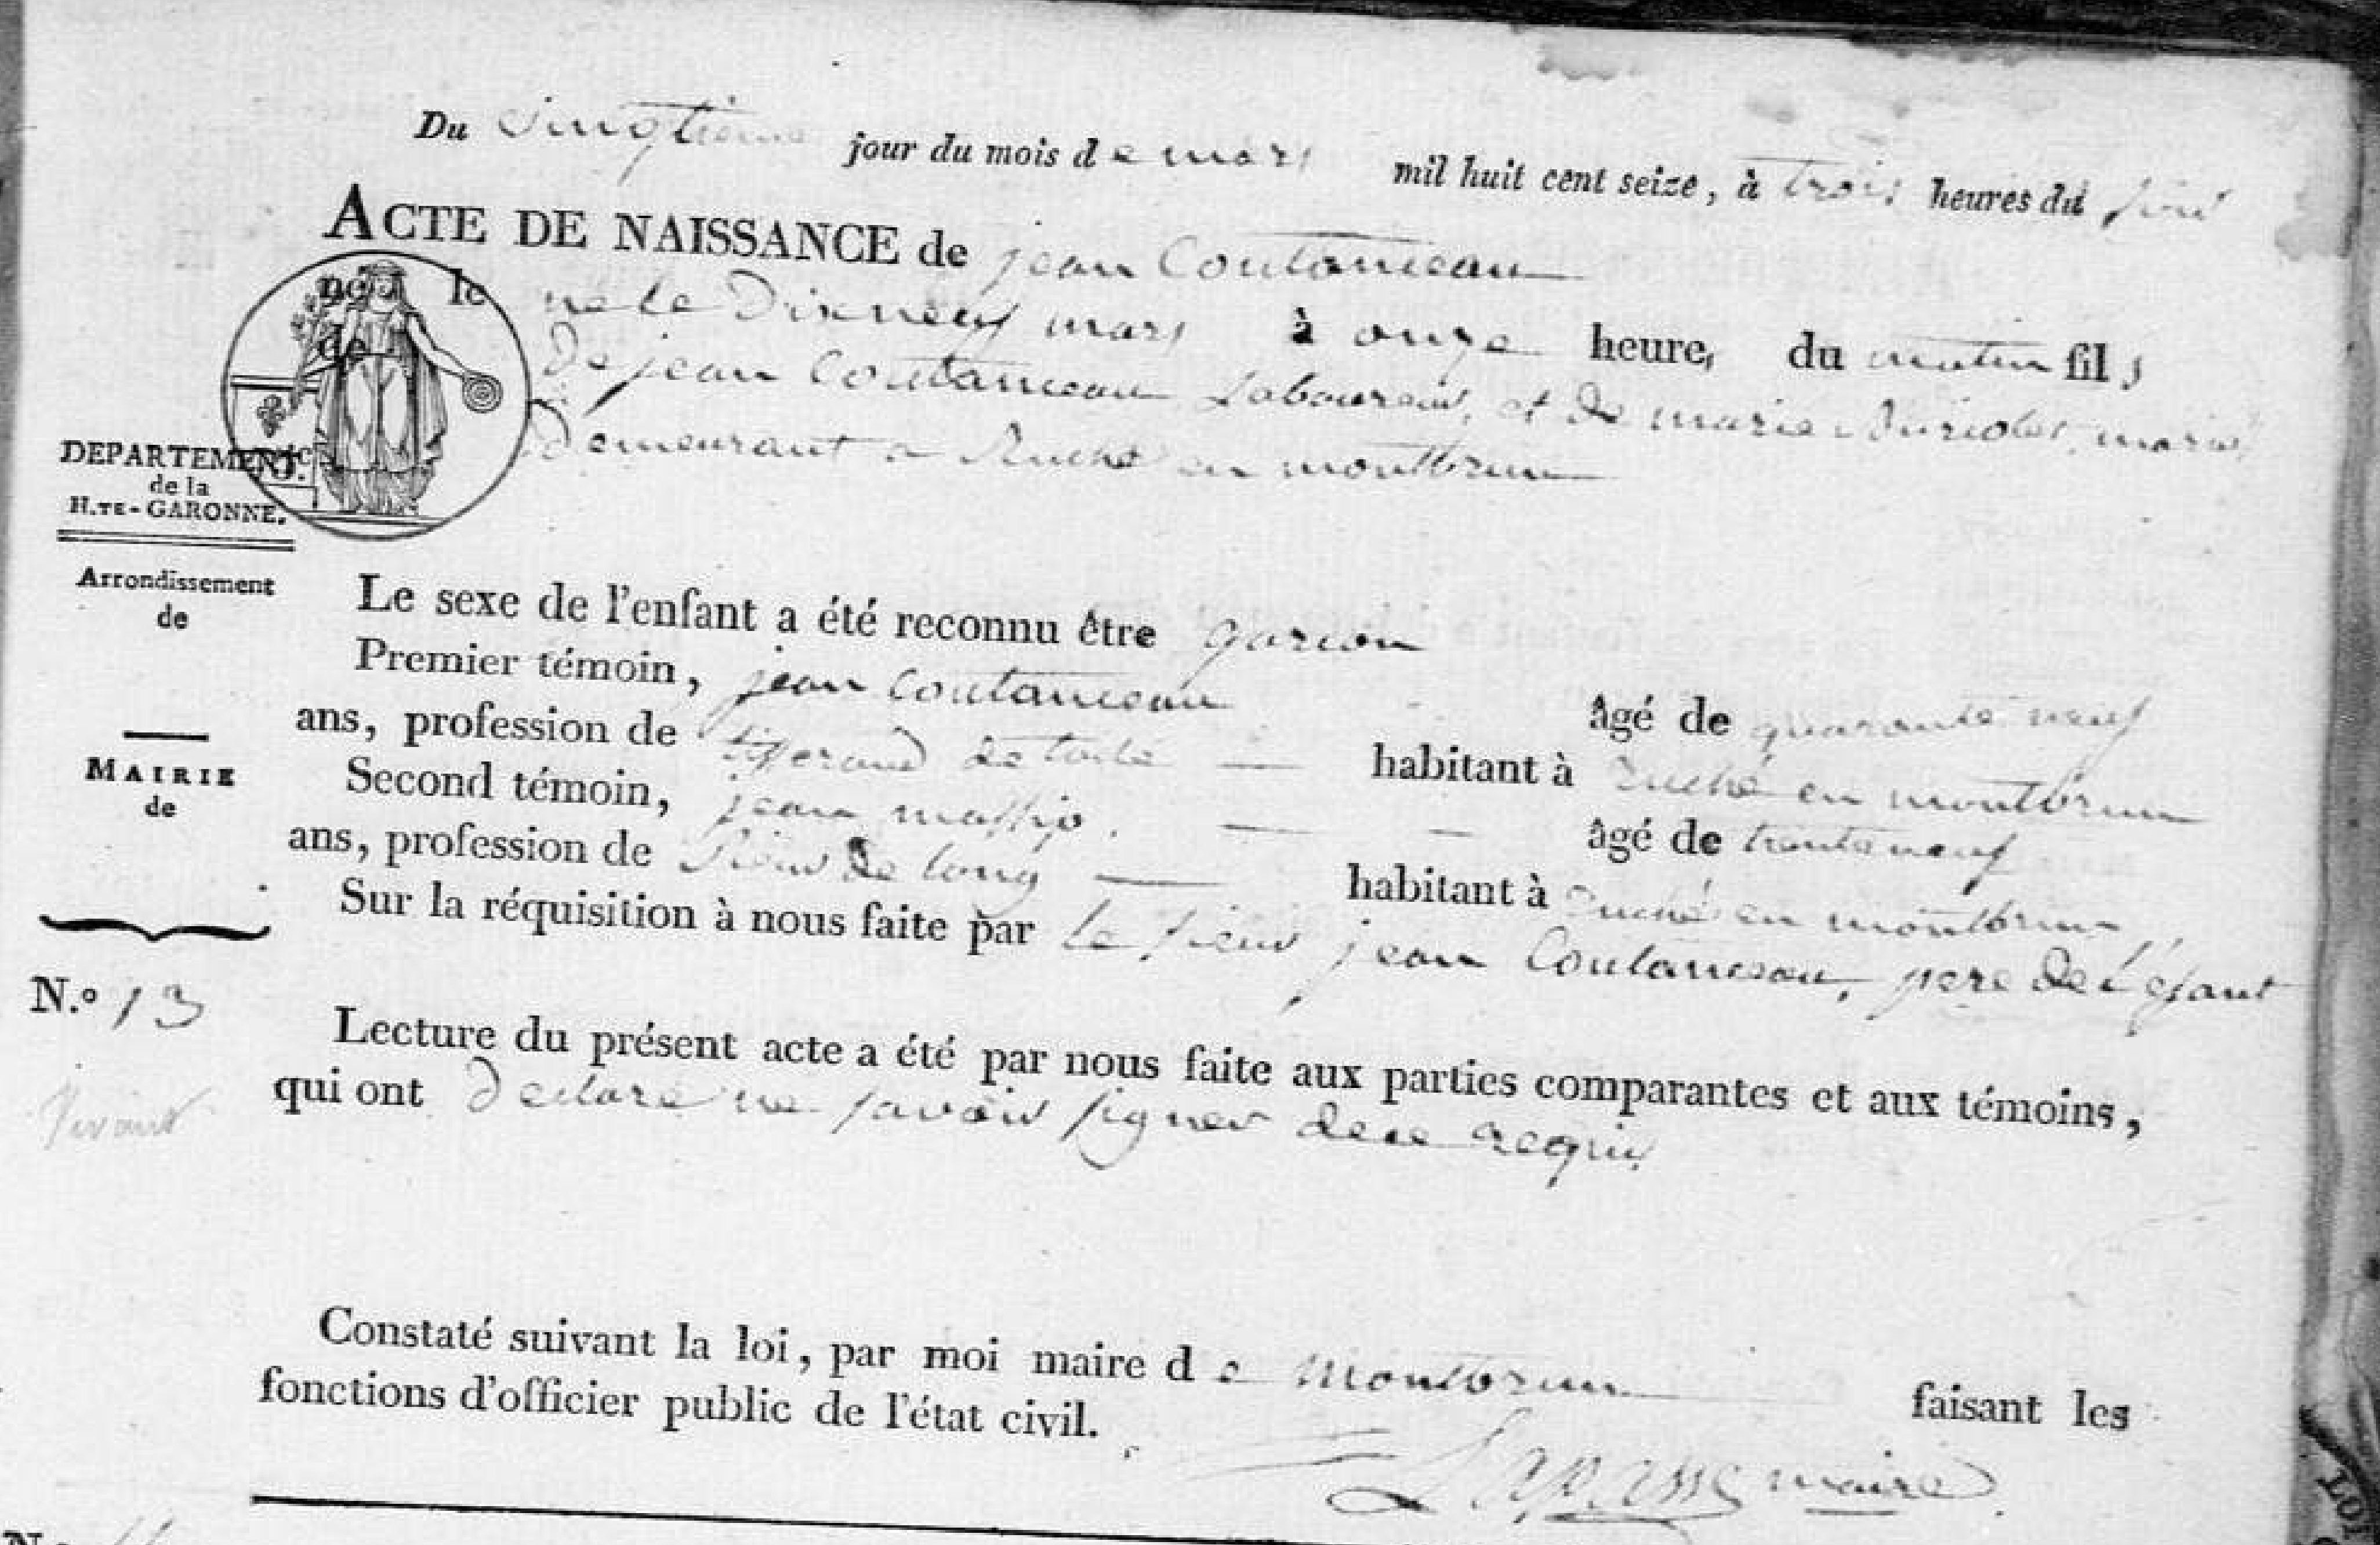 Du vingtieme jour du mois de mars mil huit cent seize, à trois heures du soir
ACTE DE NAISSANCE de jean Coutanceau
né le
né le Dixneuf mars à onze heure, du matin fils
de
De jean Coutanceau Laboureur, et De marie mariés
Demeurant a Ruché en montbrun
DEPARTEMENT
de la
H.TE-GARONNE.
Arrondissement
de
MAIRIE
de
N.º 13
vivant
Le sexe de l'enfant a été reconnu être garcon
Premier témoin, jean Coutanceau âgé de quarante neuf
ans, profession de tisserand de toile habitant à Ruché en montbrun
Second témoin, jean massip. âgé de trente neuf
ans, profession de sieur De long habitant à Ruché en montbrun
Sur la réquisition à nous faite par le sieur jean Coutanceau, pere De L'efant
Lecture du présent acte a été par nous faite aux parties comparantes et aux témoins,
qui ont Declaré ne savoir signer de ce requis
Constaté suivant la loi, par moi maire de Montbrun faisant les
fonctions d'officier public de l'état civil.
Lapasse maire